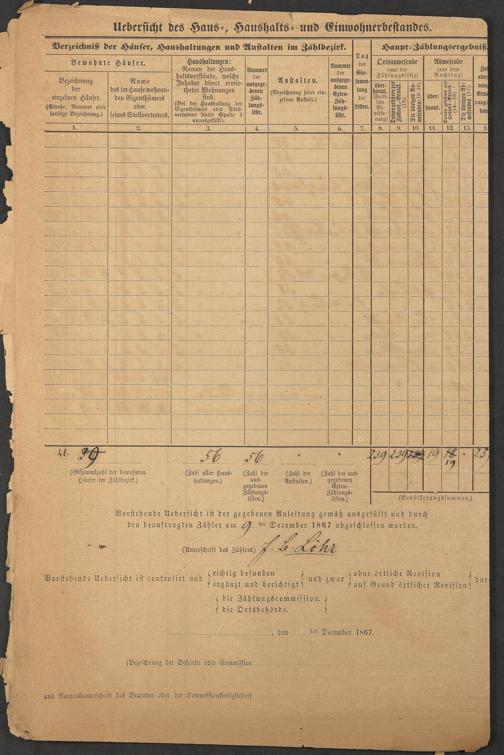 Uebersicht des Haus-, Haushalts- und Einwohnerbestandes.
Verzeichniß der Häuser, Haushaltungen und Anstalten im Zählbezirk.
Haupt-Zählungsergebniß
Bewohnte Häuser.
Bezeichnung
der
einzelnen Häuser.
(Straße, Nummer oder
sonstige Bezeichnung.)
Name
des im Hause wohnen-
den Eigenthümers
oder
seines Stellvertreters.
Haushaltungen:
Namen der Haus-
haltsvorstände, welche
Inhaber direct ermie-
theter Wohnungen
sind.
(Bei der Haushaltung des
Eigenthümers oder Stell-
vertreters bleibt Spalte 3
unausgefüllt.)
Nummer
der
ausge-
gebenen
Zäh-
lungs-
liste.
Anstalten.
(Bezeichnung jeder ein-
zelnen Anstalt.)
Nummer
der
ausge-
gebenen
Extra-
Zäh-
lungs-
liste.
Tag
der
Ein-
samm-
lung
der
Listen.
Ortsanwesende
über-
haupt.
Abwesende
über-
haupt.
1. 2. 3. 4. 5. 6. 7. 8. 9. 10. 11. 12. 13.
41. 39 56 56 239 239 239 19 18
19
(Gesammtzahl der bewohnten
Häuser im Zählbezirk.)
(Zahl aller Haus-
haltungen.)
(Zahl der
aus-
gegebenen
Zählungs-
listen.)
(Zahl der
Anstalten.)
(Zahl der aus-
gegebenen
Extra-
Zählungs-
listen.)
(Bevölkerungssummen.)
Vorstehende Uebersicht ist der gegebenen Anleitung gemäß ausgefüllt und durch
den beauftragten Zähler am 9 ten December 1867 abgeschlossen worden.
(Unterschrift des Zählers) Löhr
Vorstehende Uebersicht ist controlirt und
richtig befunden
ergänzt und berichtigt
und zwar
ohne örtliche Revision
auf Grund örtlicher Revision
die Zählungscommission.
die Ortsbehörde.
, den ten December 1867.
(Bezeichnung der Behörde oder Commission
und Namensunterschrift des Beamten oder der Commissionsmitglieder)